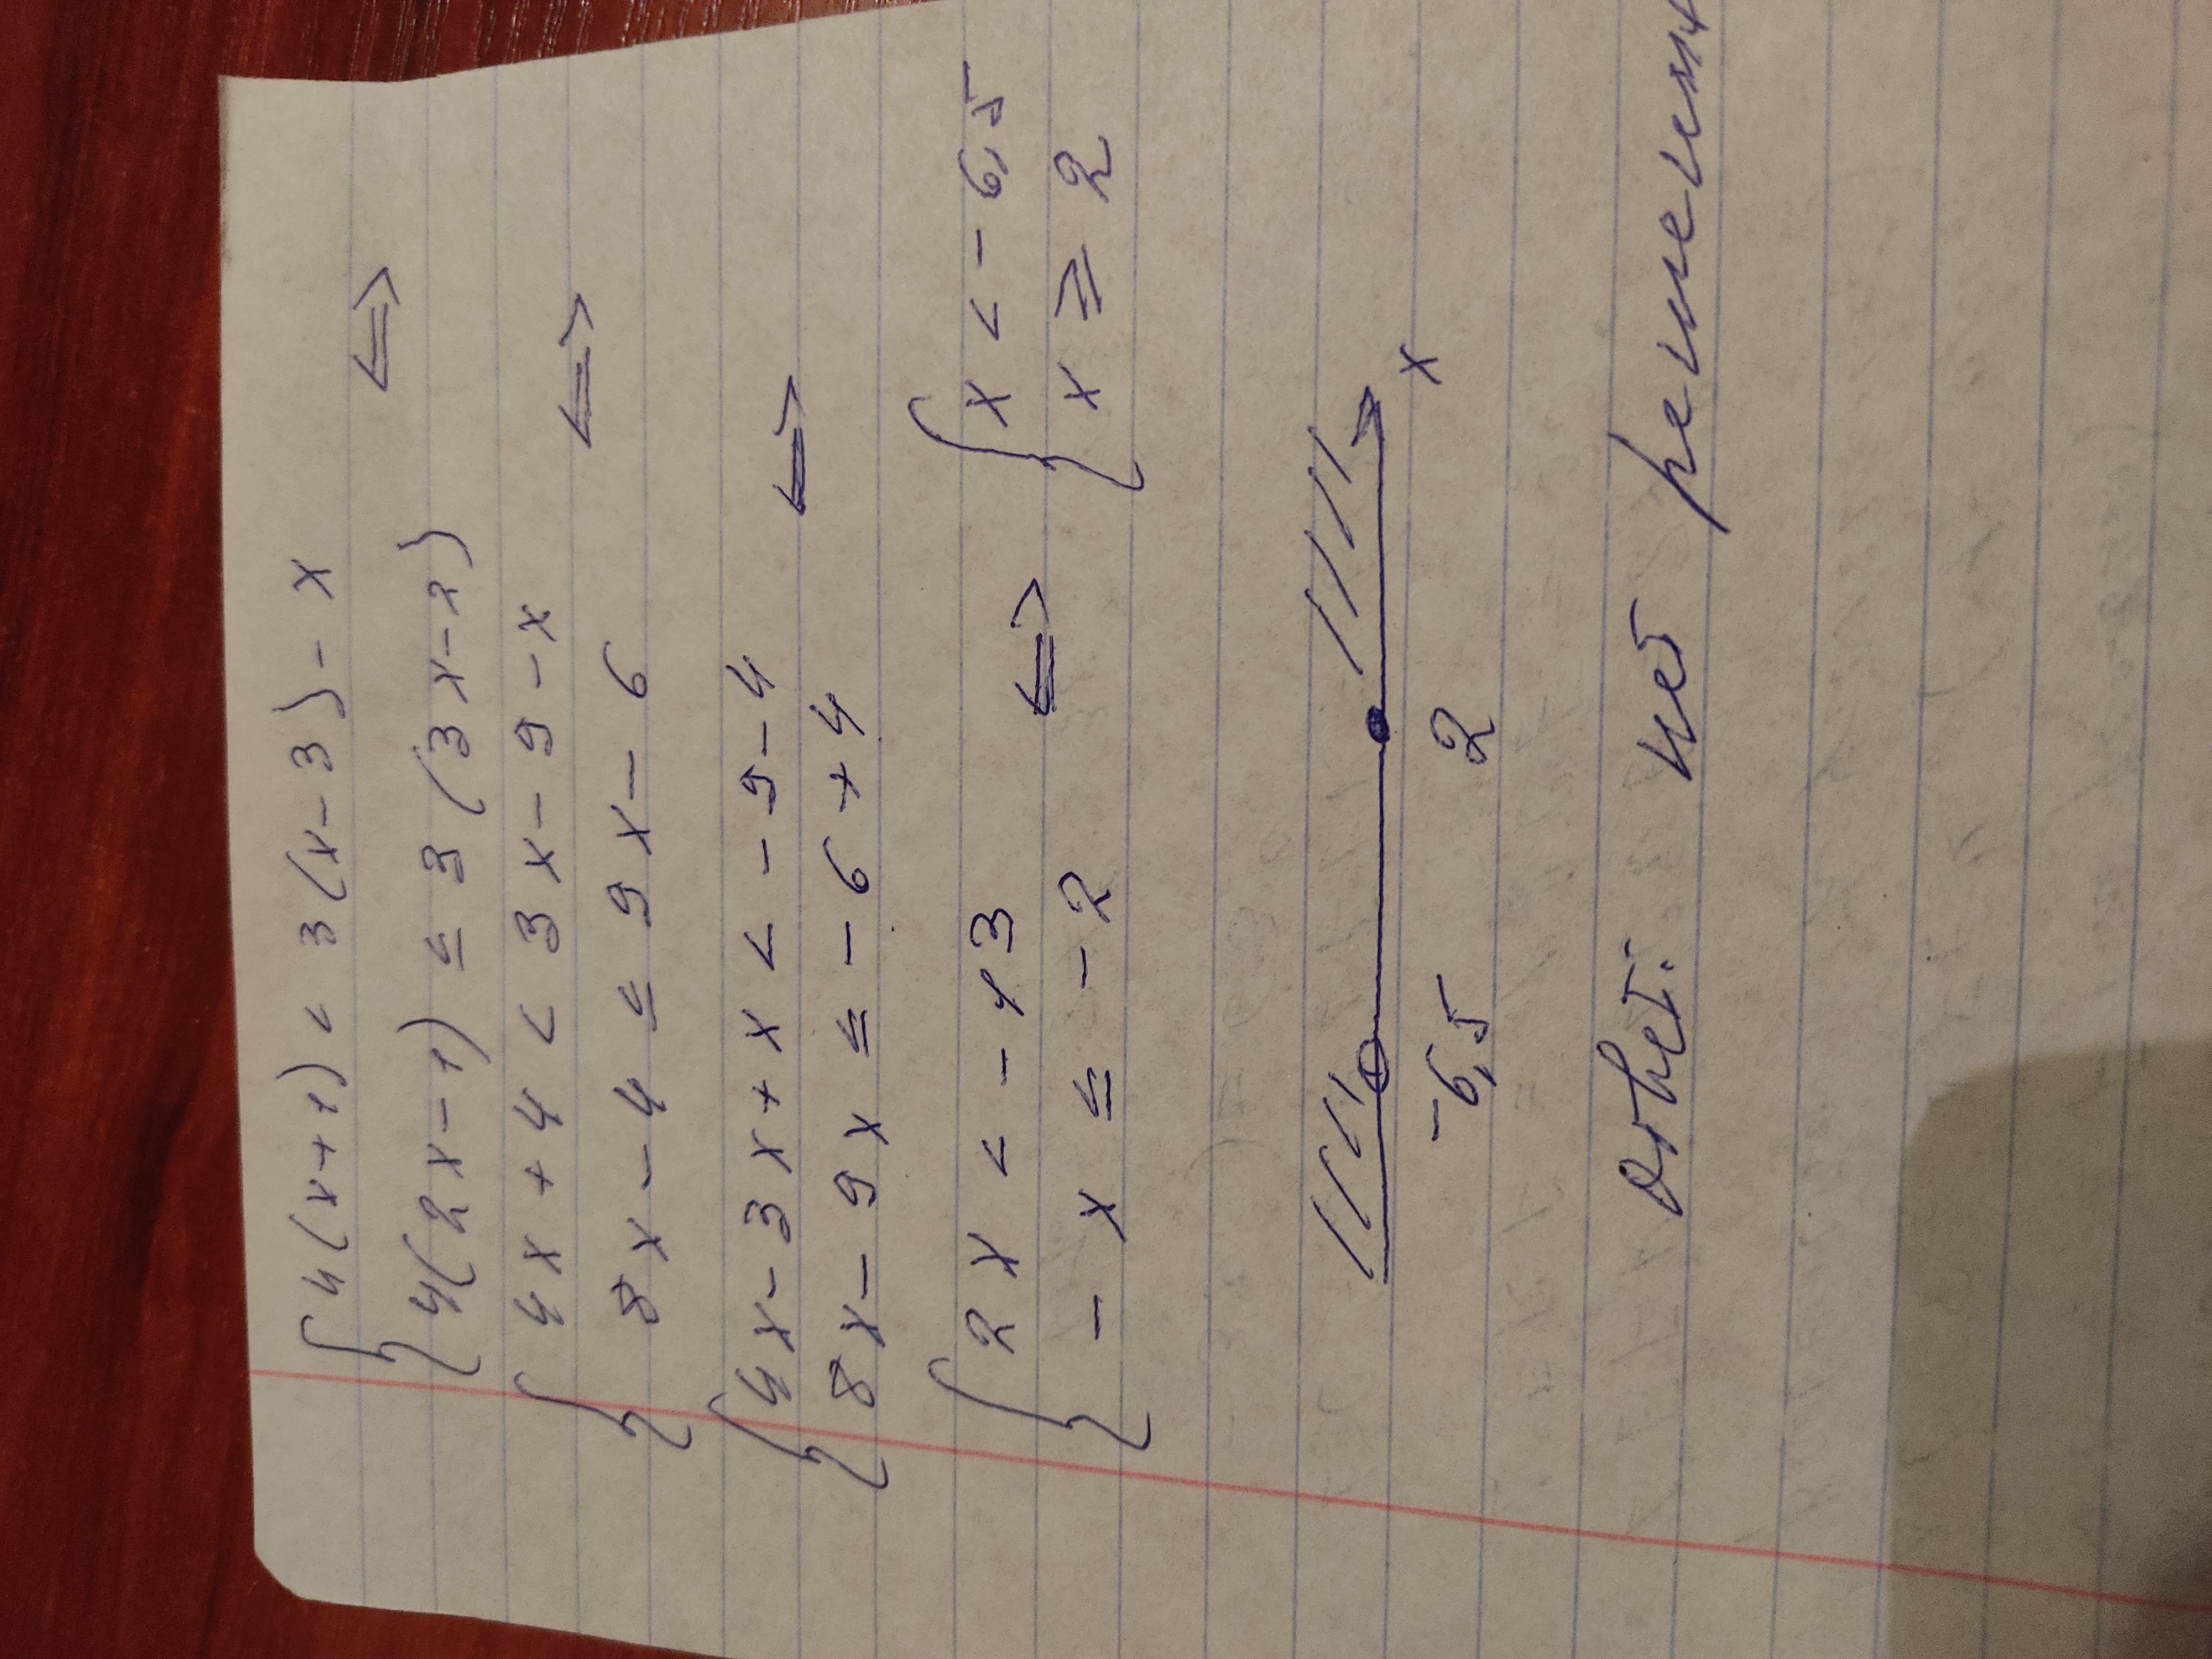 { 4(x+1) < 3(x-3) - x
4(2x-1) ≤ 3(3x-2) <=>
{ 4x + 4 < 3x - 9 - x
8x - 4 ≤ 9x - 6 <=>
{ 4x - 3x + x < - 9 - 4
8x - 9x ≤ - 6 + 4 <=>
{ 2x < - 13
- x ≤ - 2 <=> { x < - 6,5
x ⩾ 2
-6,5 2 x
Ответ: нет решений